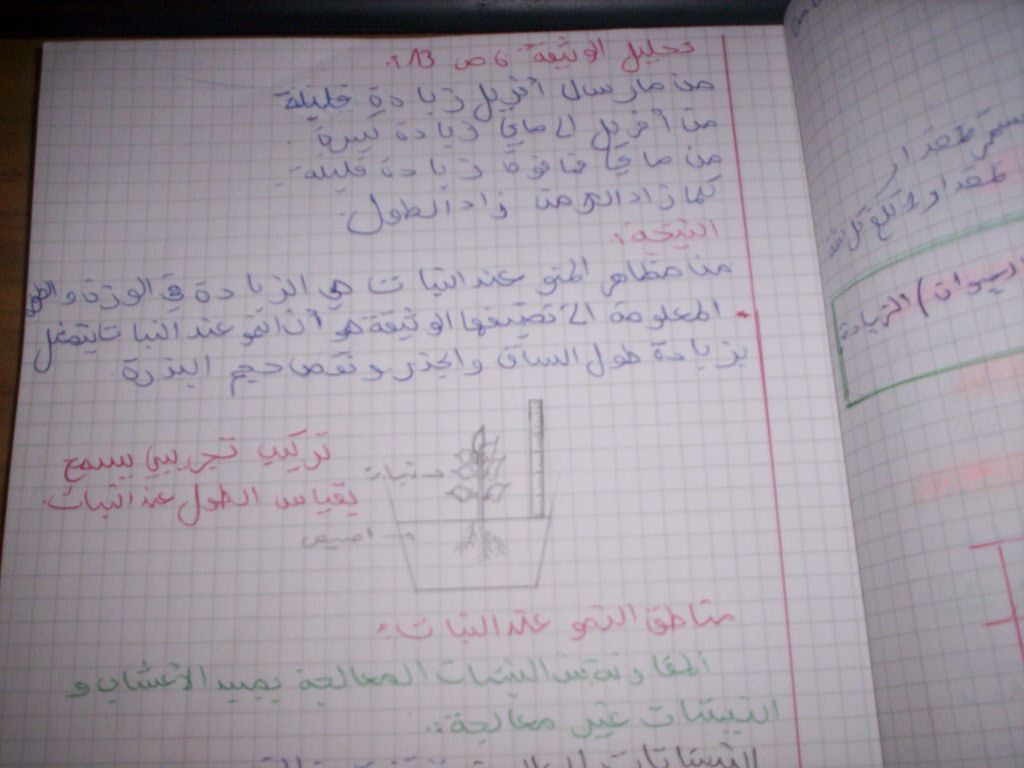 تحليل الوثيقة 6 ص 13:
من مارس ل أفريل زيادة قليلة
من أفريل لـ ماي زيادة كبيرة.
من ماي زيادة قليلة
كلما زاد الزمن زاد الطول.
النتيجة:
من مظاهر النمو عند النبات هي الزيادة في الوزن و الطول
المعلومة التي تضيفها الوثيقة هو أن النمو عند النبات يتمثل
بزيادة طول الساق و الجذر و نقص حجم البذرة.
تركيب تجريبي يسمح
بقياس الطول عند النبات.
نبات
أصيص
مناطق النمو عند النبات:
المقارنة بين النبتات المعالجة بمبيد الأعشاب و
النبتات غير معالجة:
مقدار
مقدار
الحيوان) الزيادة